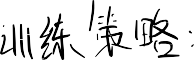 训练策略：